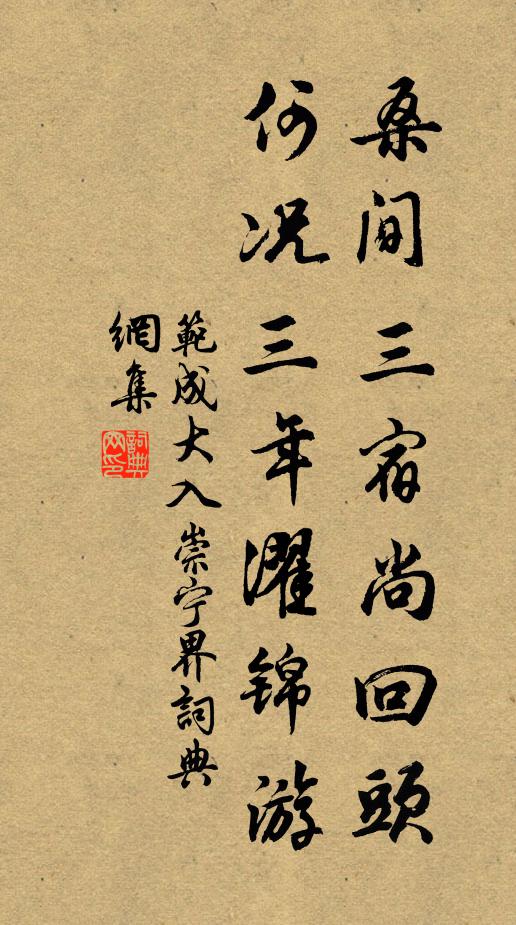 桑間三宿尚回頭
何况三年濯锦游
範成大入崇宁界詞典
網集
詞典網印